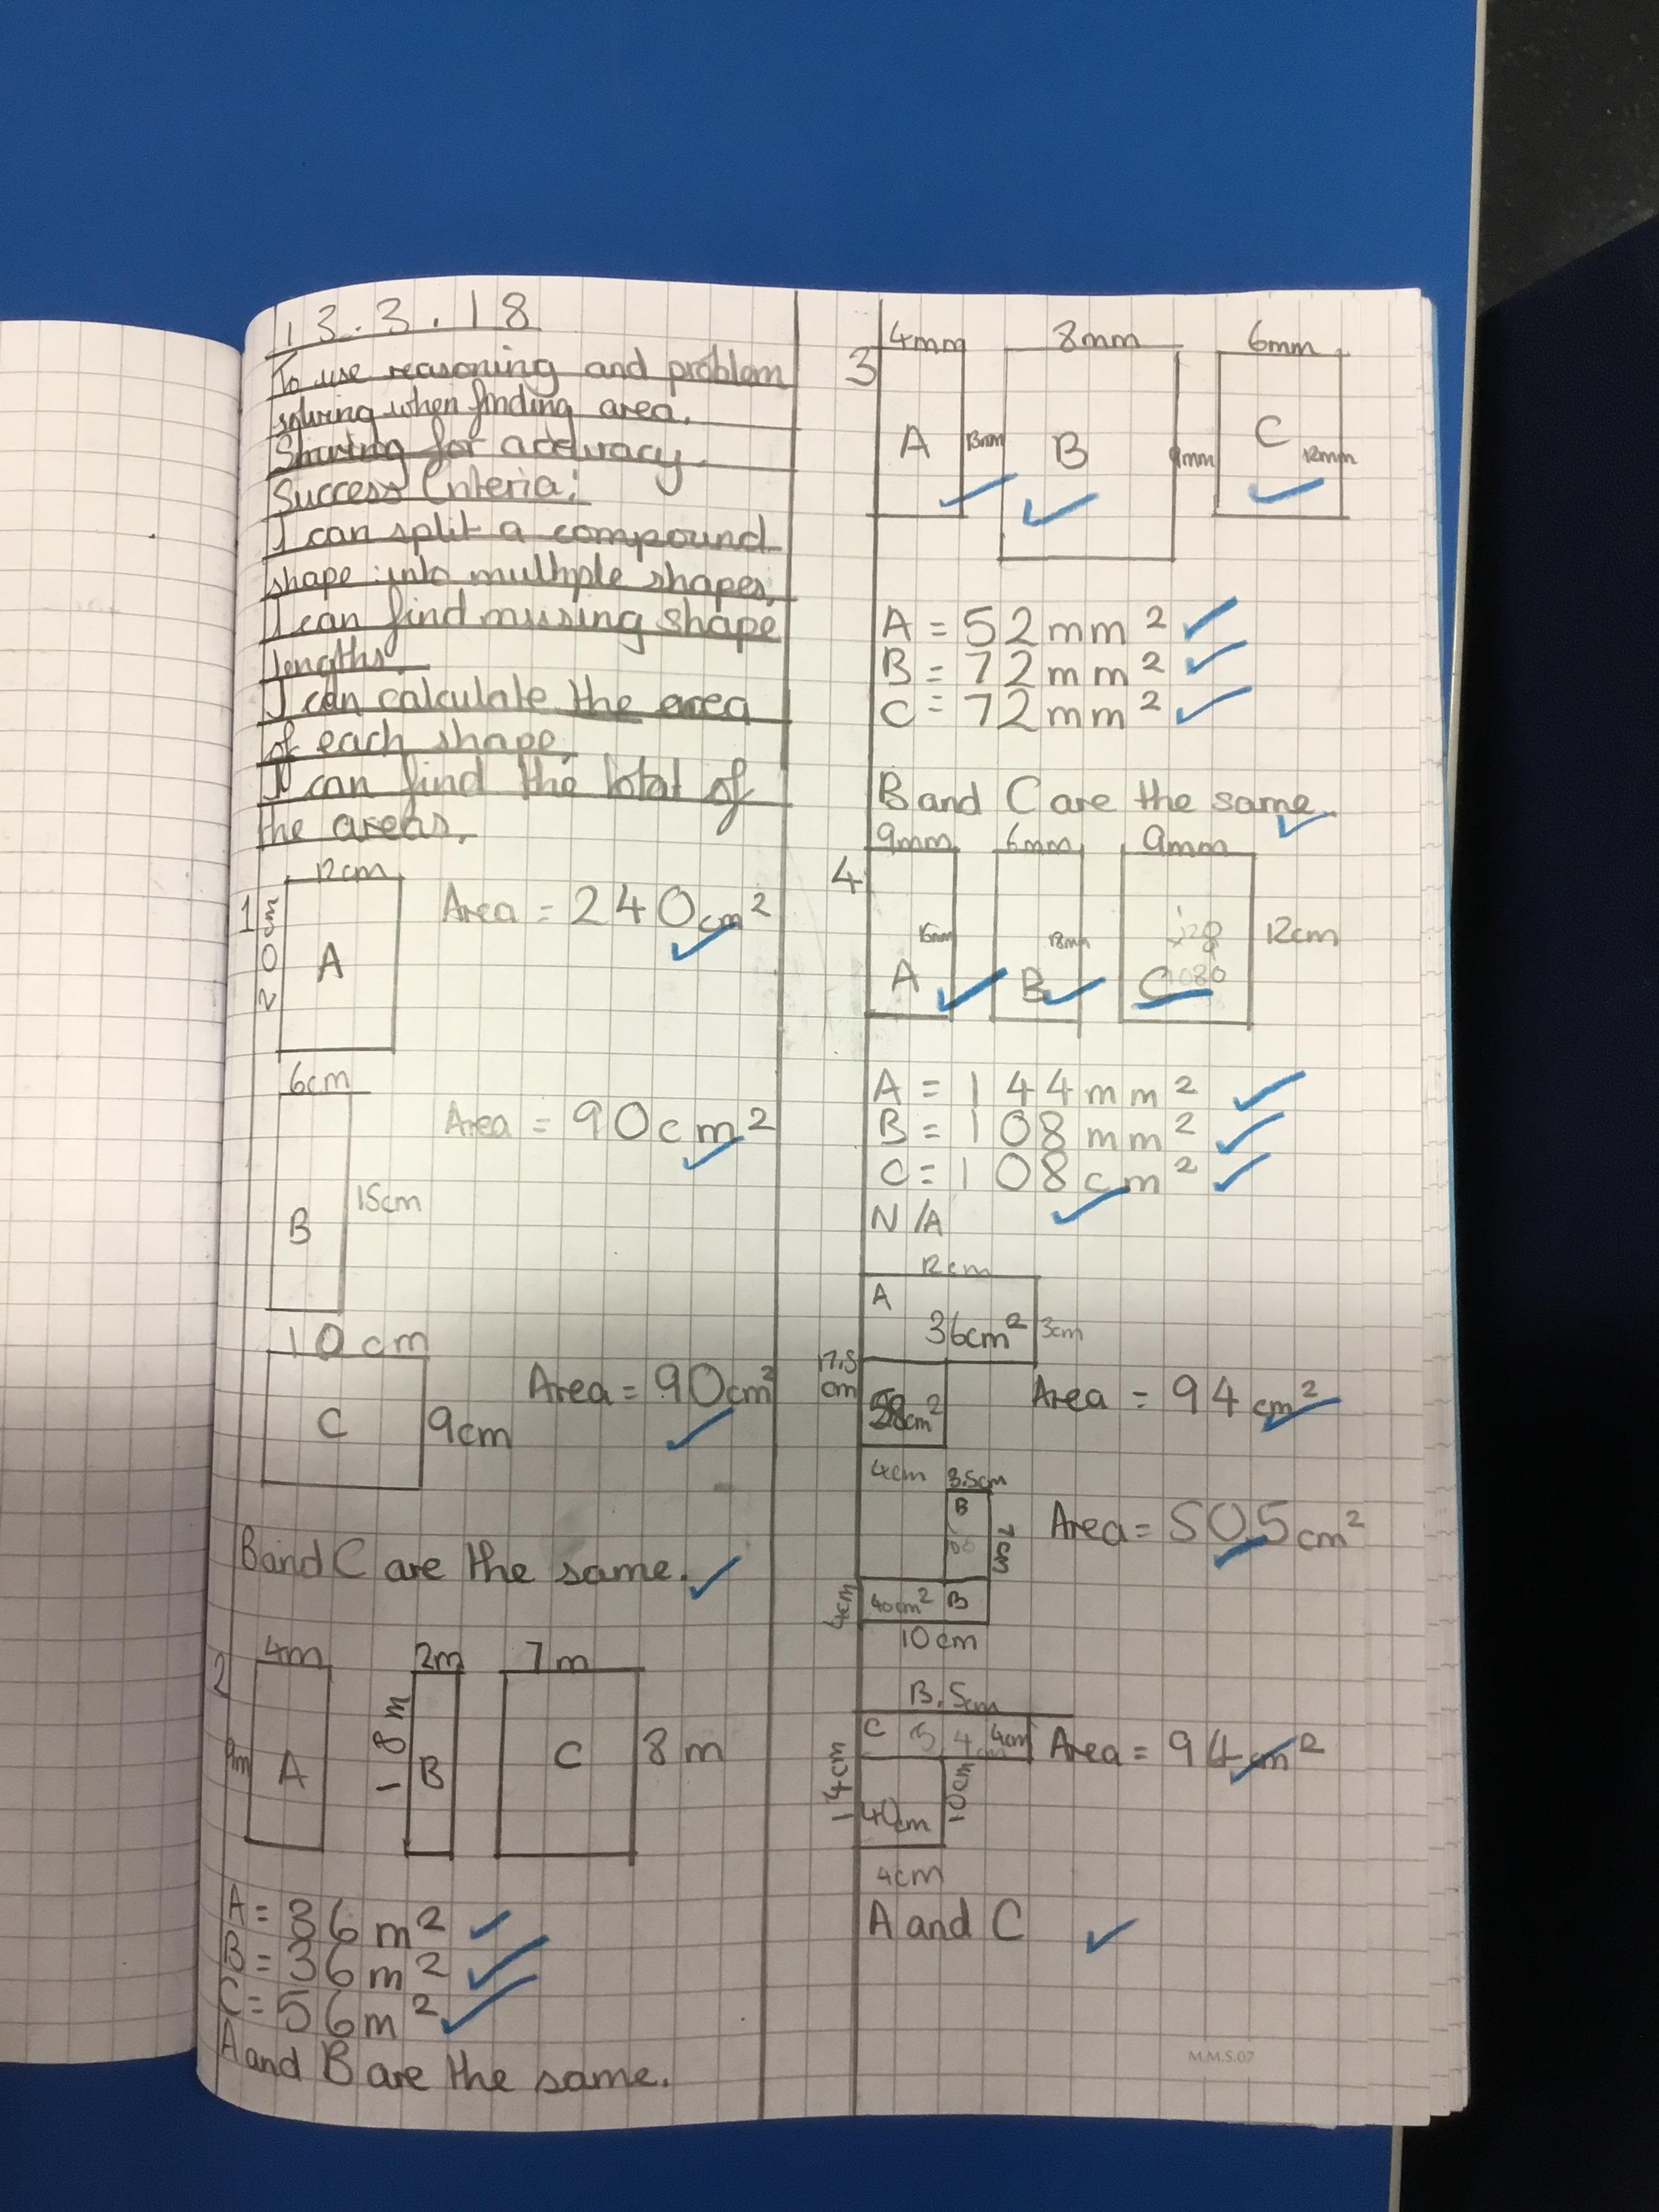 13.3.18
To use reasoning and problem
solving when finding area.
Striving for accuracy.
Success Criteria:
I can split a compound
shape into multiple shapes.
I can find missing shape
lengths.
I can calculate the area
of each shape.
I can find the total of
the areas.
1
12cm
20cm
A
Area = 240cm²
6cm
B
15cm
Area = 90cm²
10cm
C
9cm
Area = 90cm²
B and C are the same.
2
4m
9m
A
2m
18m
B
7m
C
8m
A = 36m²
B = 36m²
C = 56m²
A and B are the same.
3
4mm
A
13mm
8mm
B
9mm
6mm
C
12mm
A = 52mm²
B = 72mm²
C = 72mm²
B and C are the same.
4
9mm
A
16mm
6mm
B
18mm
9mm
C
12cm
A = 144mm²
B = 108mm²
C = 108cm²
N/A
12cm
A
36cm²
3cm
17.5
cm
58cm²
4cm
Area = 94cm²
3.5cm
B
4cm
40cm²
B
10cm
Area = 50.5cm²
13.5cm
C
4cm
14cm
10cm
40cm
4cm
Area = 94cm²
A and C
M.M.S.07